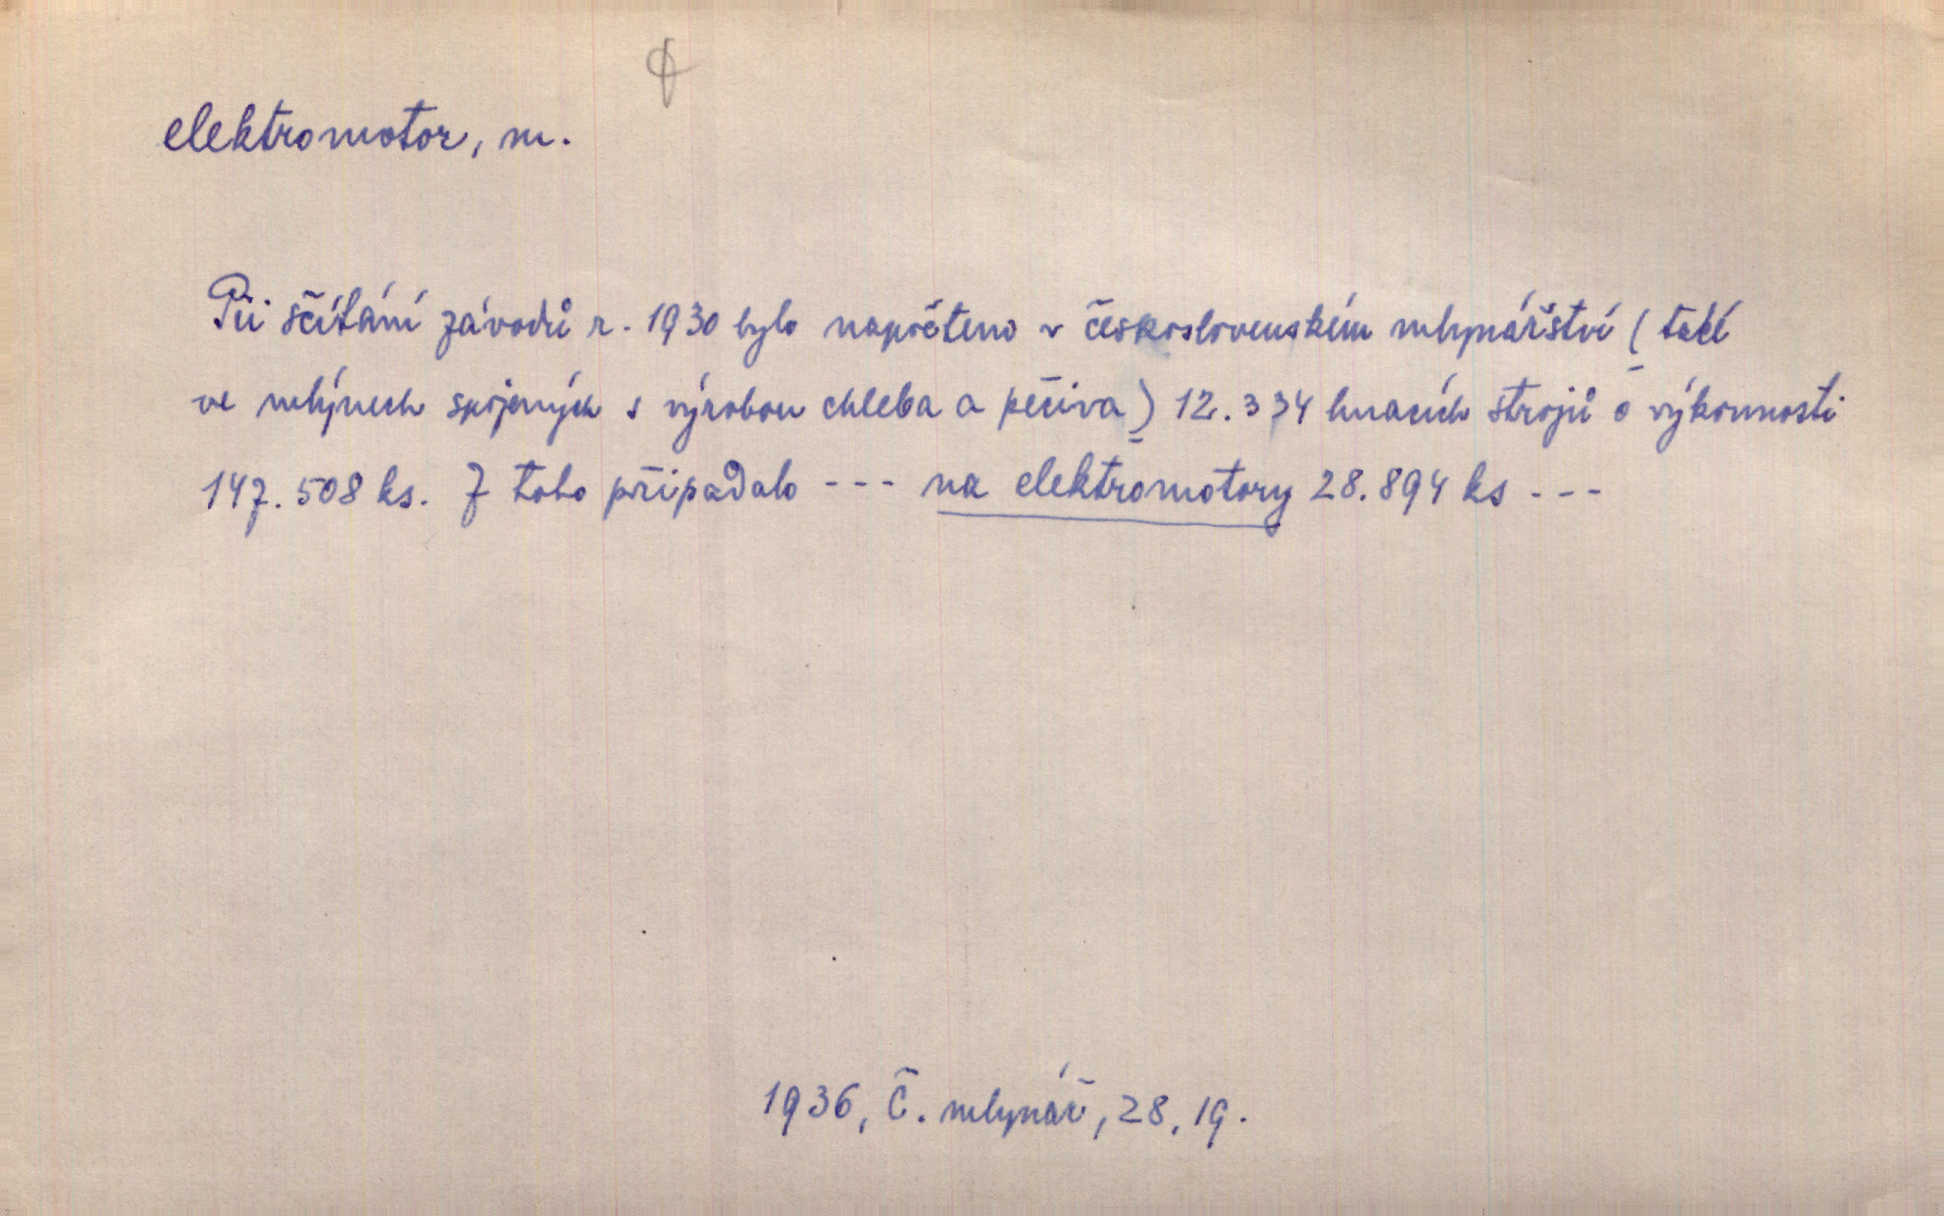 elektromotor, m.
Při sčítání závodů r. 1930 bylo napočteno v československém mlynářství (také
ve mlýnech spojených s výrobou chleba a pečiva) 12.334 hnacích strojů o výkonnosti
147.508 ks. Z toho připadalo --- na elektromotory 28.894 ks ---
1936, Č. mlynář, 28, 19.